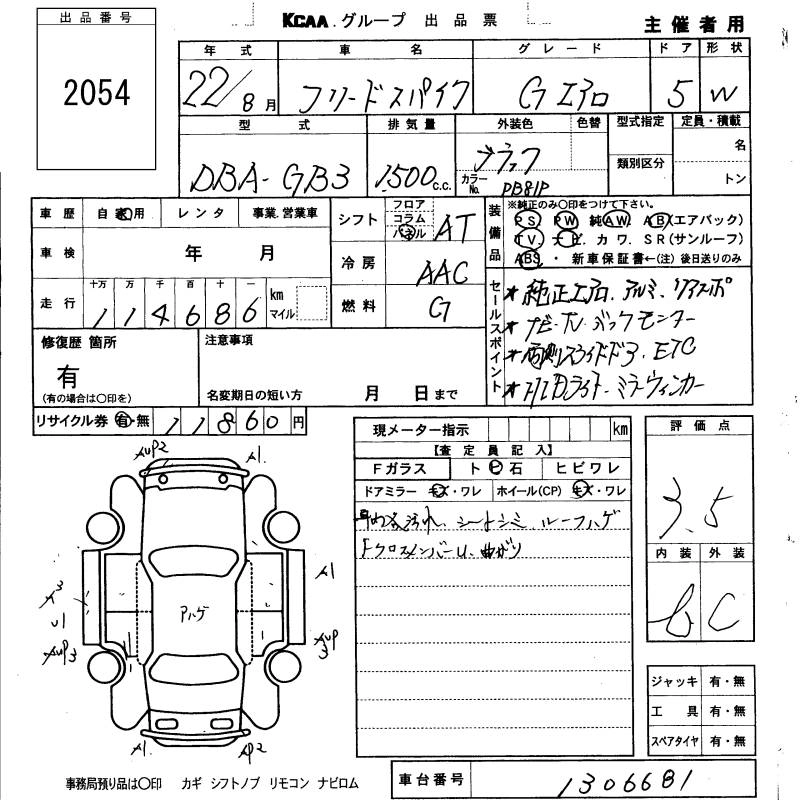 出品番号
2054
KCAA グループ 出品票
主催者用
年式 車名 グレード ドア 形状
22/8月 フリードスパイク Gエアロ 5 W
型式 排気量 外装色 色替 型式指定 定員・積載
DBA-GB3 1500 c.c. ブラック 名
カラーNo. PB81P 類別区分 トン
車歴 自家用 レンタ 事業.営業車
車検 年 月
走行 十万 万 千 百 十 一
114686 km マイル
シフト フロア コラム パネル AT
冷房 AAC
燃料 G
装備品
※純正のみ○印をつけて下さい。
PS PW 純AW. AB(エアバック)
TV. ナビ. カワ. SR(サンルーフ)
ABS ・ 新車保証書←(注)後日送りのみ
セールスポイント
★純正エアロ.アルミ.リアスポ
★ナビ.TV.バックモニター
★両側スライドドア.ETC
★HIDライト.ミラーウィンカー
修復歴 箇所
有
(有の場合は○印を)
注意事項
名変期日の短い方 月 日まで
リサイクル券 有・無 11860円
現メーター指示 km
【査定員記入】
Fガラス ト ビ 石 ヒビワレ
ドアミラー キズ・ワレ ホイール(CP) キズ・ワレ
シートシミ ルーフハゲ
Fクロスメンバーu.曲がり
評価点
3.5
内装 外装
b C
AUP2 A1.
A3
U1
AUP3
Pハゲ
A1
A1
A1
AUP3
A1. AP2
ジャッキ 有・無
工具 有・無
スペアタイヤ 有・無
事務局預り品は○印 カギ シフトノブ リモコン ナビロム
車台番号 1306681